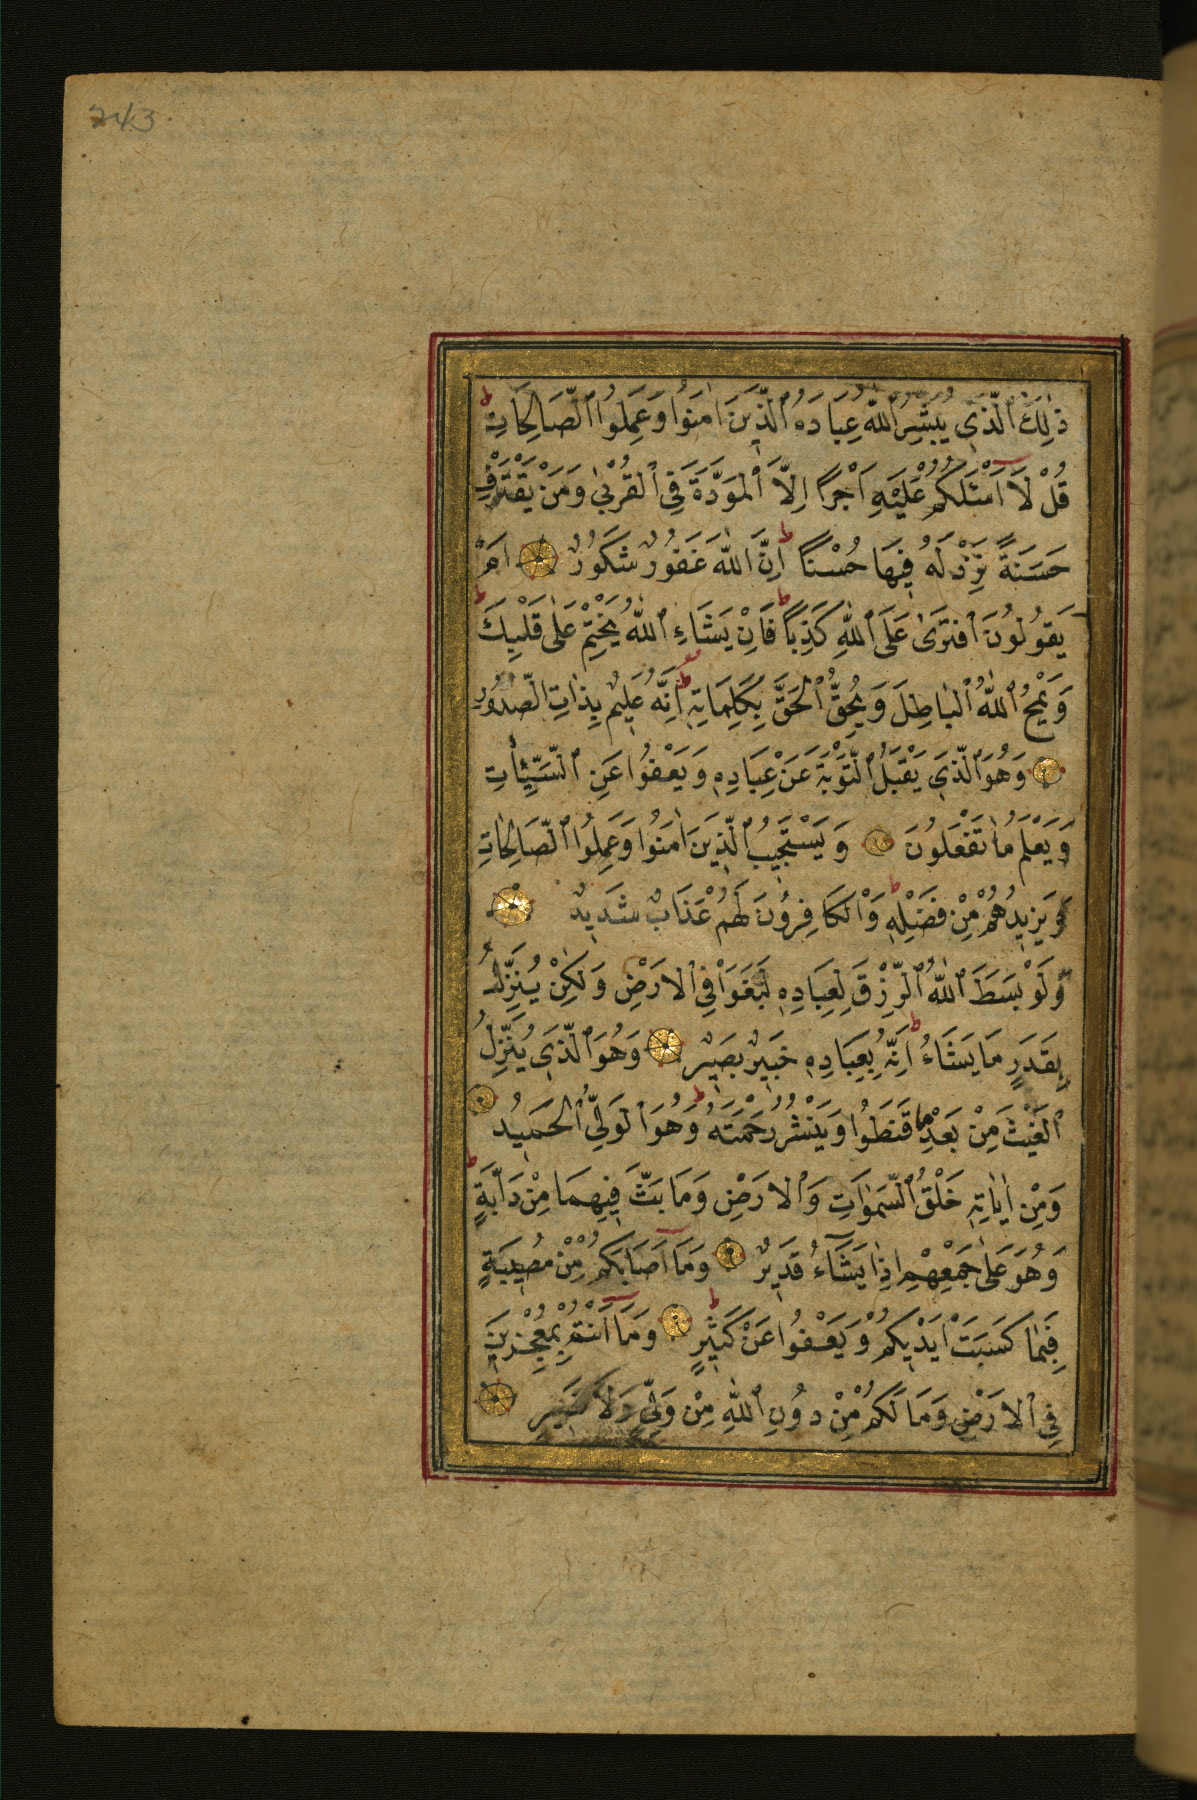 243
ذٰلِكَ ٱلَّذِي يُبَشِّرُ ٱللّٰهُ عِبَادَهُ ٱلَّذِينَ اٰمَنُوا وَعَمِلُوا ٱلصَّالِحَاتِ ط
قُلْ لَا اَسْئَلُكُمْ عَلَيْهِ اَجْرًا اِلَّا ٱلْمَوَدَّةَ فِي ٱلْقُرْبٰى وَمَنْ يَقْتَرِفْ
حَسَنَةً نَزِدْ لَهُ فِيهَا حُسْنًا ط اِنَّ اللّٰهَ غَفُورٌ شَكُورٌ اَمْ
يَقُولُونَ ٱفْتَرَىٰ عَلَى ٱللّٰهِ كَذِبًا ط فَاِنْ يَشَاءِ ٱللّٰهُ يَخْتِمْ عَلٰى قَلْبِكَ ط
وَيَمْحُ ٱللّٰهُ ٱلْبَاطِلَ وَيُحِقُّ ٱلْحَقَّ بِكَلِمَاتِهِ ط اِنَّهُ عَلِيمٌ بِذَاتِ ٱلصُّدُورِ
وَهُوَ ٱلَّذِي يَقْبَلُ ٱلتَّوْبَةَ عَنْ عِبَادِهِ وَيَعْفُوا عَنِ ٱلسَّيِّئَاتِ
وَيَعْلَمُ مَا تَفْعَلُونَ وَيَسْتَجِيبُ ٱلَّذِينَ اٰمَنُوا وَعَمِلُوا ٱلصَّالِحَاتِ
وَيَزِيدُهُمْ مِنْ فَضْلِهِ ط وَٱلْكَافِرُونَ لَهُمْ عَذَابٌ شَدِيدٌ
وَلَوْ بَسَطَ ٱللّٰهُ ٱلرِّزْقَ لِعِبَادِهِ لَبَغَوْا فِي ٱلْارَضِ وَلٰكِنْ يُنَزِّلُ
بِقَدَرٍ مَا يَشَاءُ ط اِنَّهُ بِعِبَادِهِ خَبِيرٌ بَصِيرٌ وَهُوَ ٱلَّذِي يُنَزِّلُ
ٱلْغَيْثَ مِنْ بَعْدِ مَا قَنَطُوا وَيَنْشُرُ رَحْمَتَهُ ط وَهُوَ ٱلْوَلِيُّ ٱلْحَمِيدُ
وَمِنْ اٰيَاتِهِ خَلْقُ ٱلسَّمٰوَاتِ وَٱلْارَضِ وَمَا بَثَّ فِيهِمَا مِنْ دَابَّةٍ ط
وَهُوَ عَلٰى جَمْعِهِمْ اِذَا يَشَاءُ قَدِيرٌ وَمَا اَصَابَكُمْ مِنْ مُصِيبَةٍ
فَبِمَا كَسَبَتْ اَيْدِيكُمْ وَيَعْفُوا عَنْ كَثِيرٍ ط وَمَا اَنْتُمْ بِمُعْجِزِينَ
فِي ٱلْارَضِ وَمَا لَكُمْ مِنْ دُونِ ٱللّٰهِ مِنْ وَلِيٍّ وَلَا نَصِيرٍ